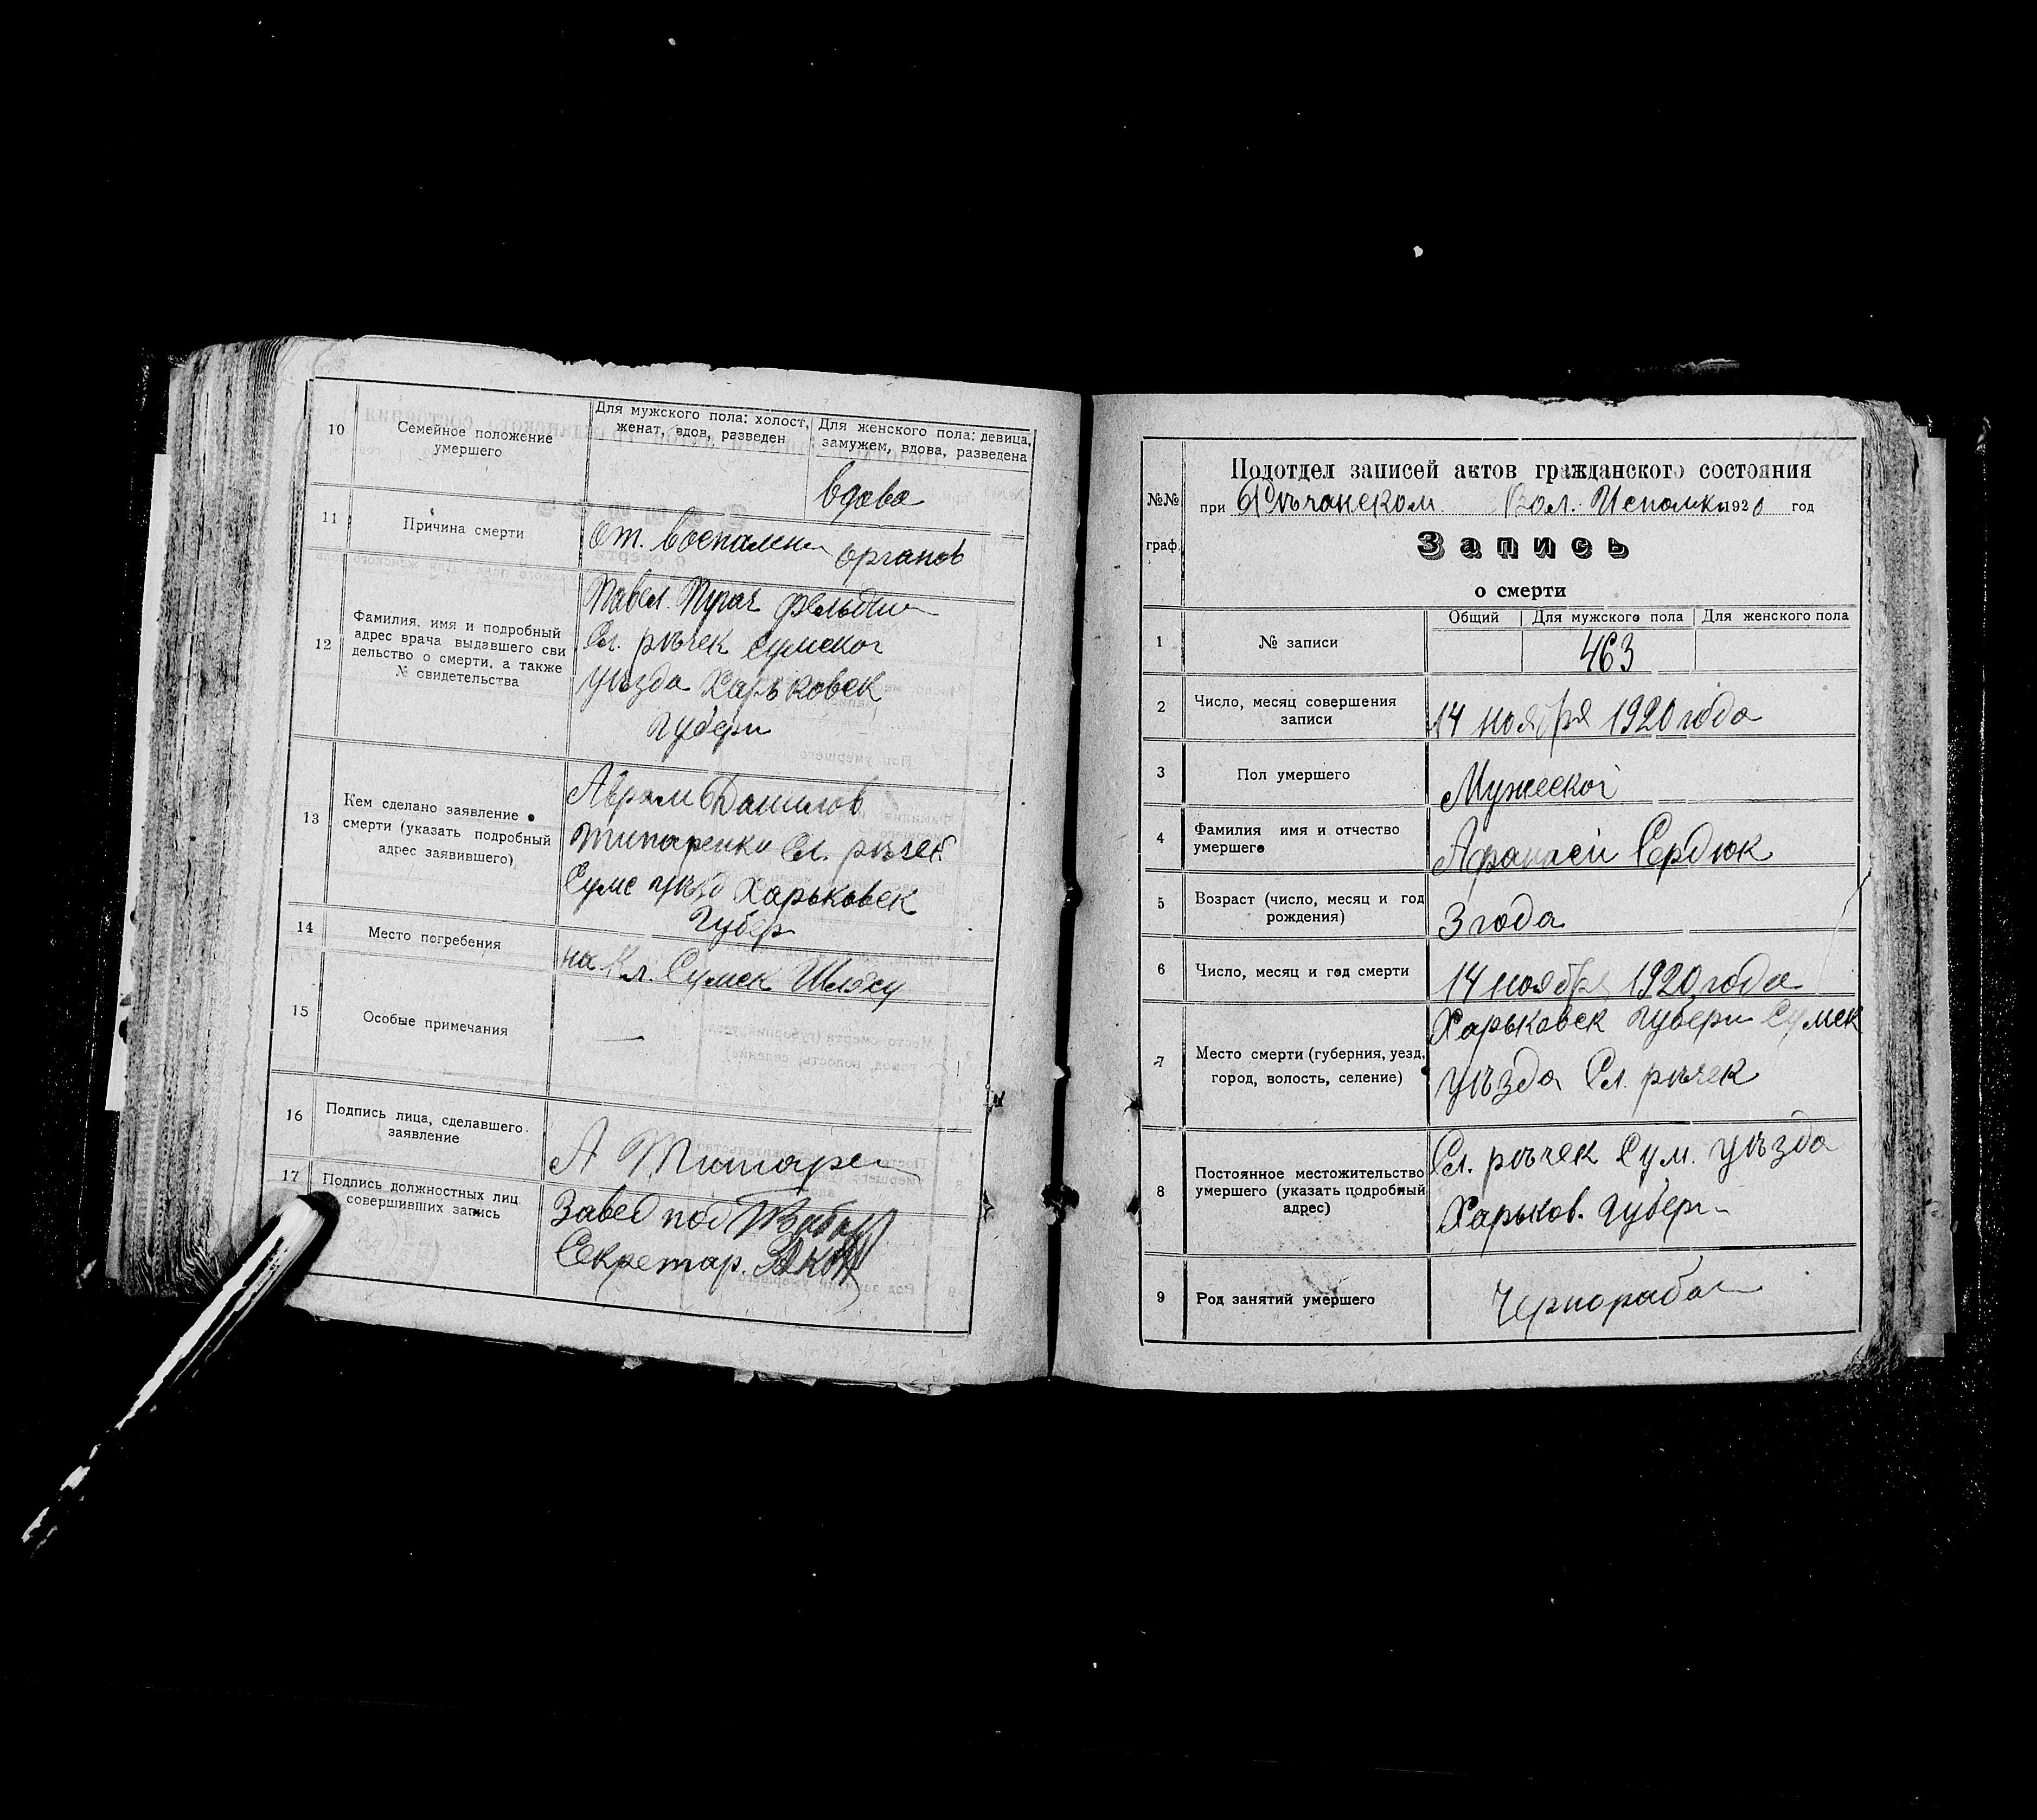 10
Семейное положение
умершего
Для мужского пола: холост,
женат, вдов, разведен
Для женского пола: девица,
замужем, вдова, разведена
вдова
11
Причина смерти
от. воспалени органов
12
Фамилия, имя и подробный
адрес врача выдавшего сви
дельство о смерти, а также
№ свидетельства
Павел. Пугач фельдш
Сл. ръчек Сумског
уъзда Харьковск
Губерн
13
Кем сделано заявление о
смерти (указать подробный
адрес заявившего)
Аврам Данилов
Титаренко Сл. ръчек
Сумс уъзд Харьковск
Губер
14
Место погребения
на Кл. Сумск Шляху
15
Особые примечания
—
16
Подпись лица, сделавшего
заявление
А Титаре
17
Подпись должностных лиц
совершивших запись
Завед под
Секретар.
№№
граф.
Подотдел записей актов гражданского состояния
при Ръчанском Вол. Исполк 1920 год
Запись
о смерти
1
№ записи
Общий
Для мужского пола
Для женского пола
463
2
Число, месяц совершения
записи
14 ноября 1920 года
3
Пол умершего
Мужеской
4
Фамилия имя и отчество
умершего
Афанасей Сердюк
5
Возраст (число, месяц и год
рождения)
3 года
6
Число, месяц и год смерти
14 ноября 1920 года
7
Место смерти (губерния, уезд,
город, волость, селение)
Харьковск Губерн Сумск
уъзда Сл. ръчек
8
Постоянное местожительство
умершего (указать подробный
адрес)
Сл. ръчек Сум. уъзда
Харьков. Губерн
9
Род занятий умершего
Чернорабоч